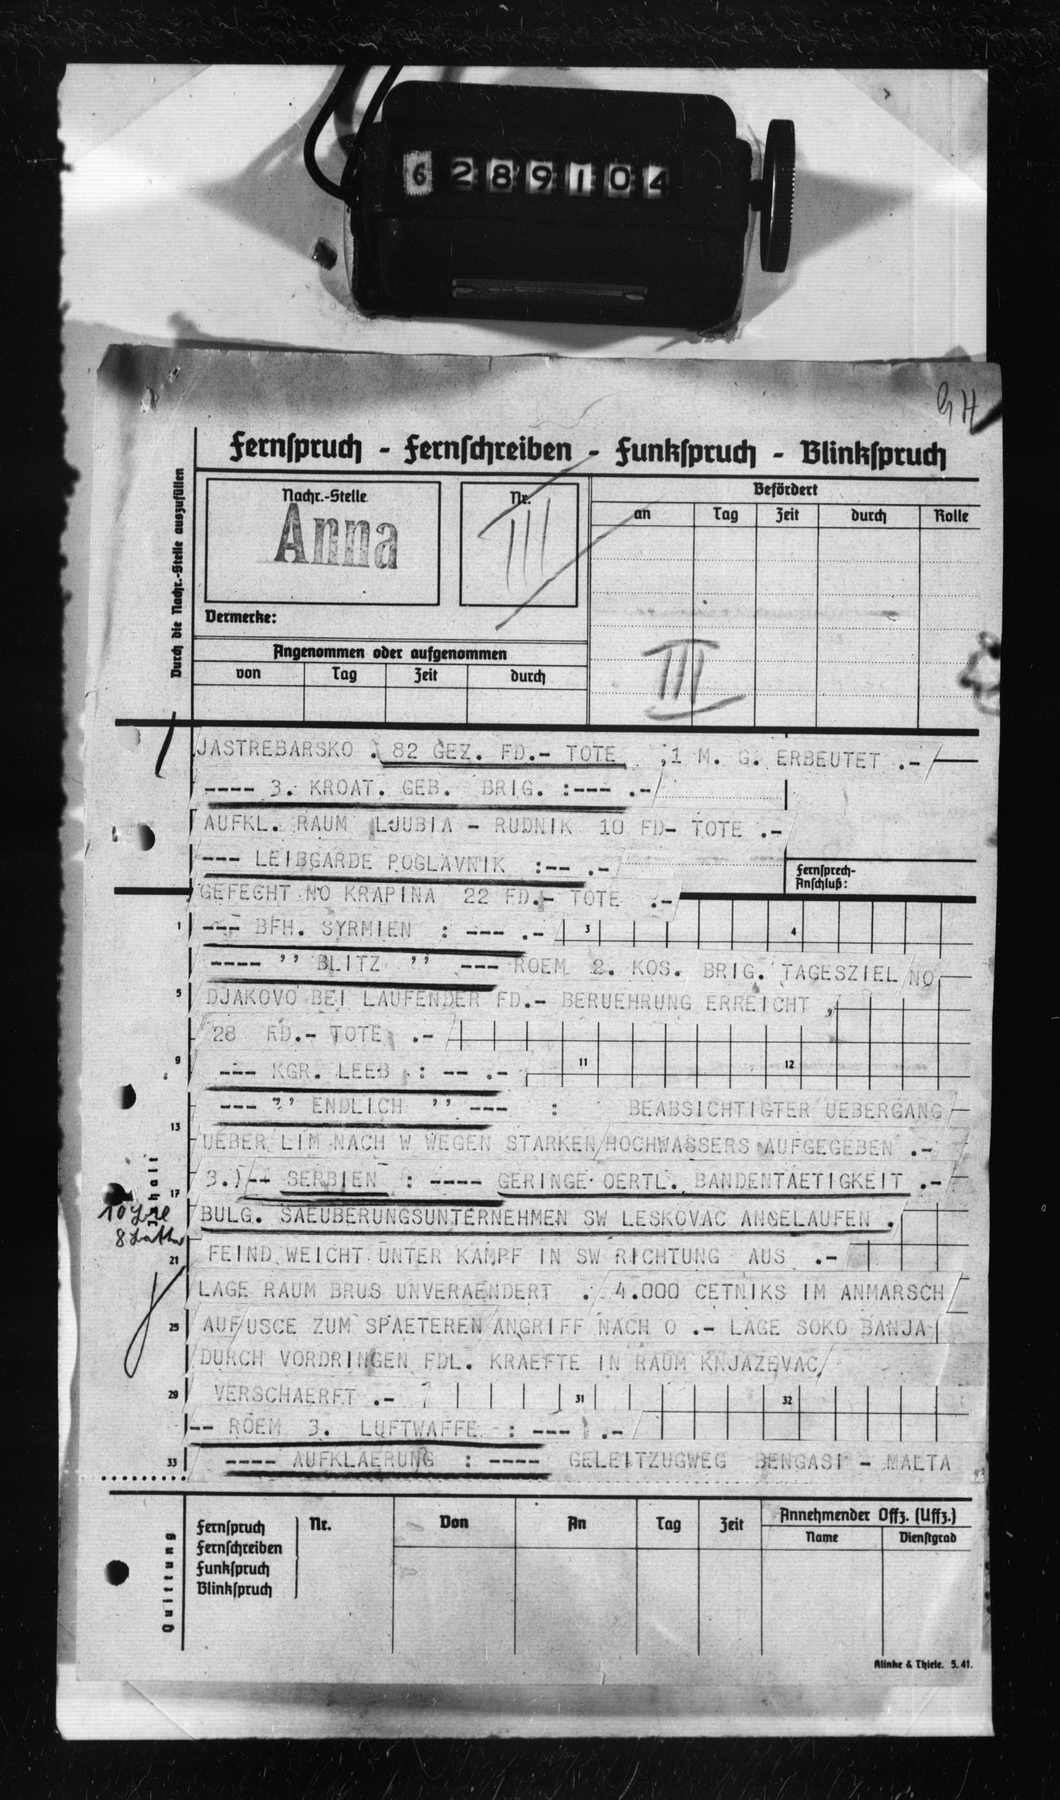 6 289104
G H
Fernspruch - Fernschreiben - Funkspruch - Blinkspruch
Durch die Nachr.-Stelle auszufüllen
Nachr.-Stelle
Anna
Nr.
III
Befördert
an Tag Zeit durch Rolle
III
Vermerke:
Angenommen oder aufgenommen
von Tag Zeit durch
JASTREBARSKO . 82 GEZ. FD.- TOTE ,1 M. G. ERBEUTET .-
---- 3. KROAT. GEB. BRIG. :--- .-
AUFKL. RAUM LJUBIA - RUDNIK 10 FD- TOTE .-
--- LEIBGARDE POGLAVNIK :-- .-
Fernsprech-
Anschluß:
GEFECHT NO KRAPINA 22 FD.- TOTE .-
1 --- BFH. SYRMIEN : --- .- 3 4
---- '' BLITZ '' --- ROEM 2. KOS. BRIG. TAGESZIEL NO
5 DJAKOVO BEI LAUFENDER FD.- BERUEHRUNG ERREICHT ,
28 FD.- TOTE .-
9 --- KGR. LEEB : -- .- 11 12
--- '' ENDLICH '' --- : BEABSICHTIGTER UEBERGANG
13 UEBER LIM NACH W WEGEN STARKEN HOCHWASSERS AUFGEGEBEN .-
3.) -- SERBIEN : ---- GERINGE OERTL. BANDENTAETIGKEIT .-
17 BULG. SAEUBERUNGSUNTERNEHMEN SW LESKOVAC ANGELAUFEN .
21 FEIND WEICHT UNTER KAMPF IN SW RICHTUNG AUS .-
LAGE RAUM BRUS UNVERAENDERT . 4.000 CETNIKS IM ANMARSCH
25 AUF USCE ZUM SPAETEREN ANGRIFF NACH O .- LAGE SOKO BANJA
DURCH VORDRINGEN FDL. KRAEFTE IN RAUM KNJAZEVAC
29 VERSCHAERFT .- 31 32
-- ROEM 3. LUFTWAFFE : --- .-
33 ---- AUFKLAERUNG : ---- GELEITZUGWEG BENGASI - MALTA
Quittung
Fernspruch
Fernschreiben
Funkspruch
Blinkspruch
Nr. Von An Tag Zeit Annehmender Offz. (Uffz.)
Name Dienstgrad
Klinke & Thiele. 5. 41.